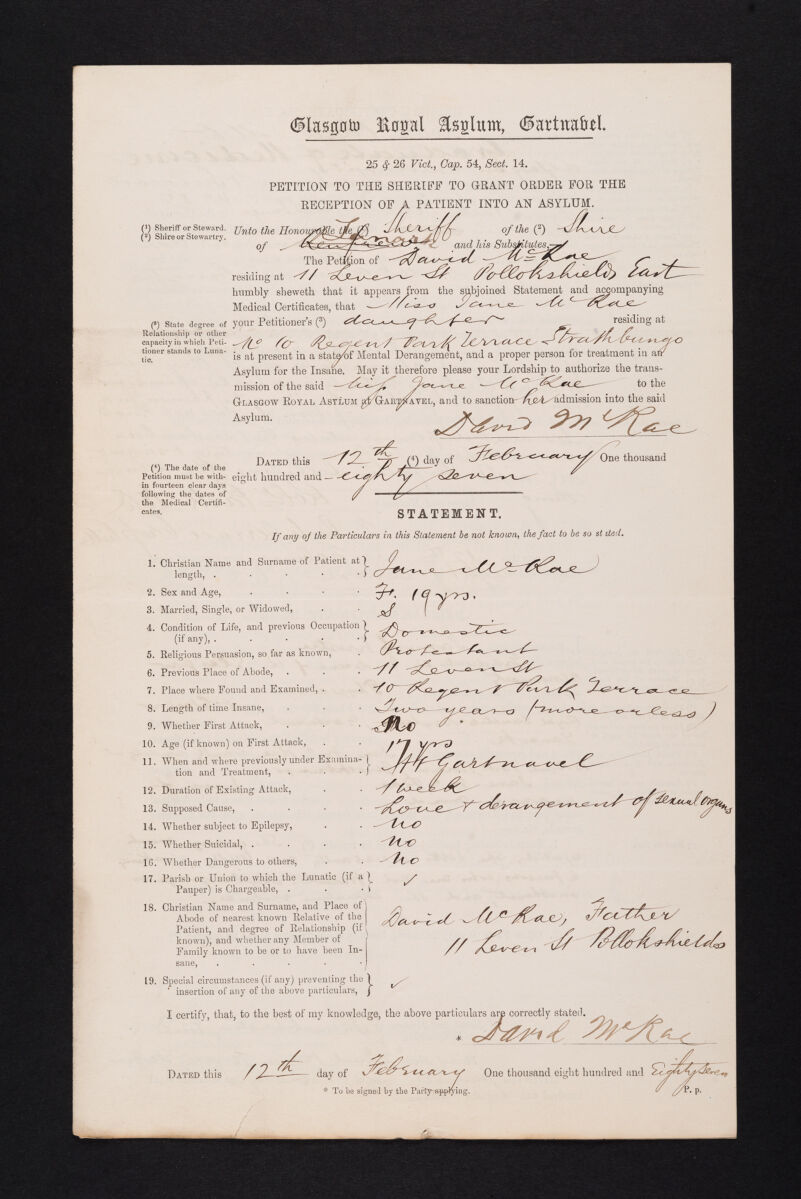 Glasgow Royal Asylum, Gartnavel.
25 & 26 Vict., Cap. 54, Sect. 14.
PETITION TO THE SHERIFF TO GRANT ORDER FOR THE
RECEPTION OF A PATIENT INTO AN ASYLUM.
(¹) Sheriff or Steward.
(²) Shire or Stewartry.
Unto the Honourable the (¹) Sheriff of the (²) Shire
Lanark
of Renfrew and his Substitutes,
The Petition of David McRae
residing at 11 Leven St Pollokshields East
humbly sheweth that it appears from the subjoined Statement and accompanying
Medical Certificates, that Miss Jane McRae
(³) State degree of
Relationship or other
capacity in which Peti-
tioner stands to Luna-
tic.
your Petitioner's (³) daughter residing at
No 10 Regent Park Terrace Strathbungo
is at present in a state of Mental Derangement, and a proper person for treatment in an
Asylum for the Insane. May it therefore please your Lordship to authorize the trans-
mission of the said Miss Jane McRae to the
GLASGOW ROYAL ASYLUM at GARTNAVEL, and to sanction her admission into the said
Asylum.
David McRae
(⁴) The date of the
Petition must be with-
in fourteen clear days
following the dates of
the Medical Certifi-
cates.
DATED this 12th (⁴) day of February One thousand
eight hundred and eighty seven
STATEMENT.
If any of the Particulars in this Statement be not known, the fact to be so stated.
1. Christian Name and Surname of Patient at
length, . . . . . Jane McRae
2. Sex and Age, . . . . F. 19 yrs.
3. Married, Single, or Widowed, . . S
4. Condition of Life, and previous Occupation
(if any), . . . . . Domestic
5. Religious Persuasion, so far as known, . Protestant
6. Previous Place of Abode, . . . 11 Leven St
7. Place where Found and Examined, . . 10 Regent Park Terrace
8. Length of time Insane, . . . Two years (more or less)
9. Whether First Attack, . . . No
10. Age (if known) on First Attack, . . 17 yrs
11. When and where previously under Examina-
tion and Treatment, . . . At Gartnavel
12. Duration of Existing Attack, . . 1 week
13. Supposed Cause, . . . . Love + derangement of sexual organs
14. Whether subject to Epilepsy, . . No
15. Whether Suicidal, . . . . No
16. Whether Dangerous to others, . . No
17. Parish or Union to which the Lunatic (if a
Pauper) is Chargeable, . . . ✓
18. Christian Name and Surname, and Place of
Abode of nearest known Relative of the
Patient, and degree of Relationship (if
known), and whether any Member of
Family known to be or to have been In-
sane, . . . . .
David McRae, Father
11 Leven St Pollokshields
19. Special circumstances (if any) preventing the
insertion of any of the above particulars, ✓
I certify, that, to the best of my knowledge, the above particulars are correctly stated.
* David McRae
DATED this 12th day of February One thousand eight hundred and Eighty seven
* To be signed by the Party applying.
P. p.